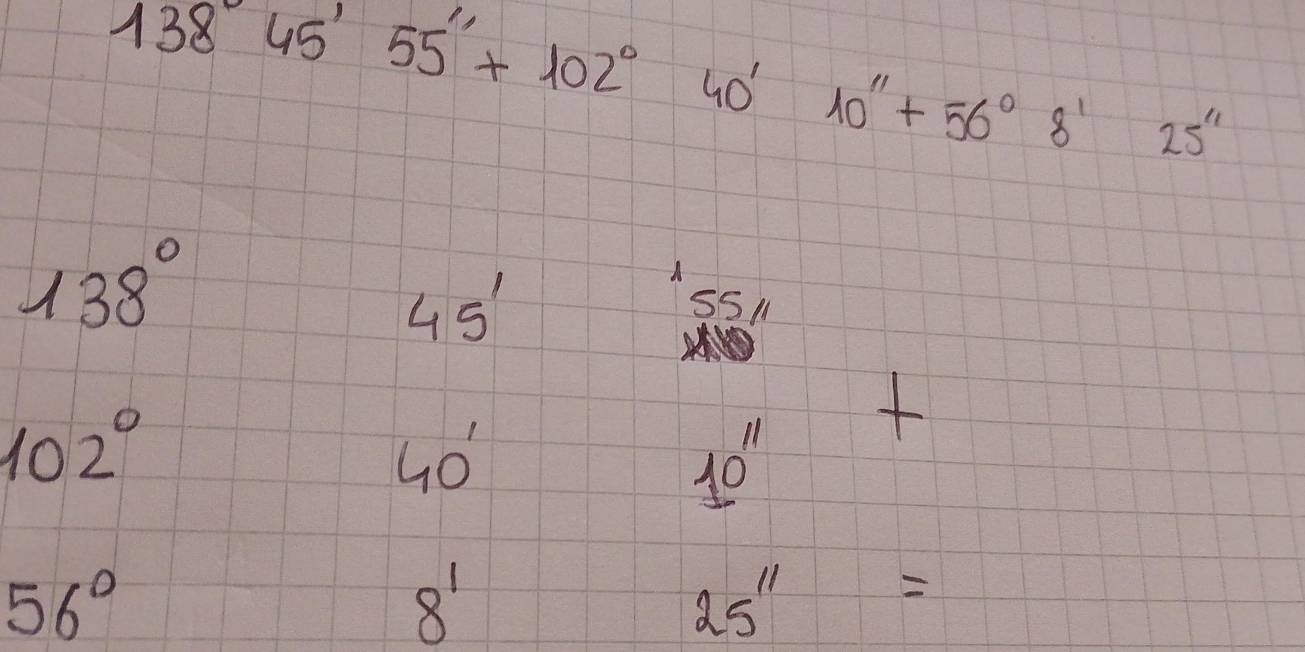 138° 45' 55" + 102° 40' 10" + 56° 8' 25"
138° 45' ¹55"
+
102° 40' 10"
56° 8' 25" =